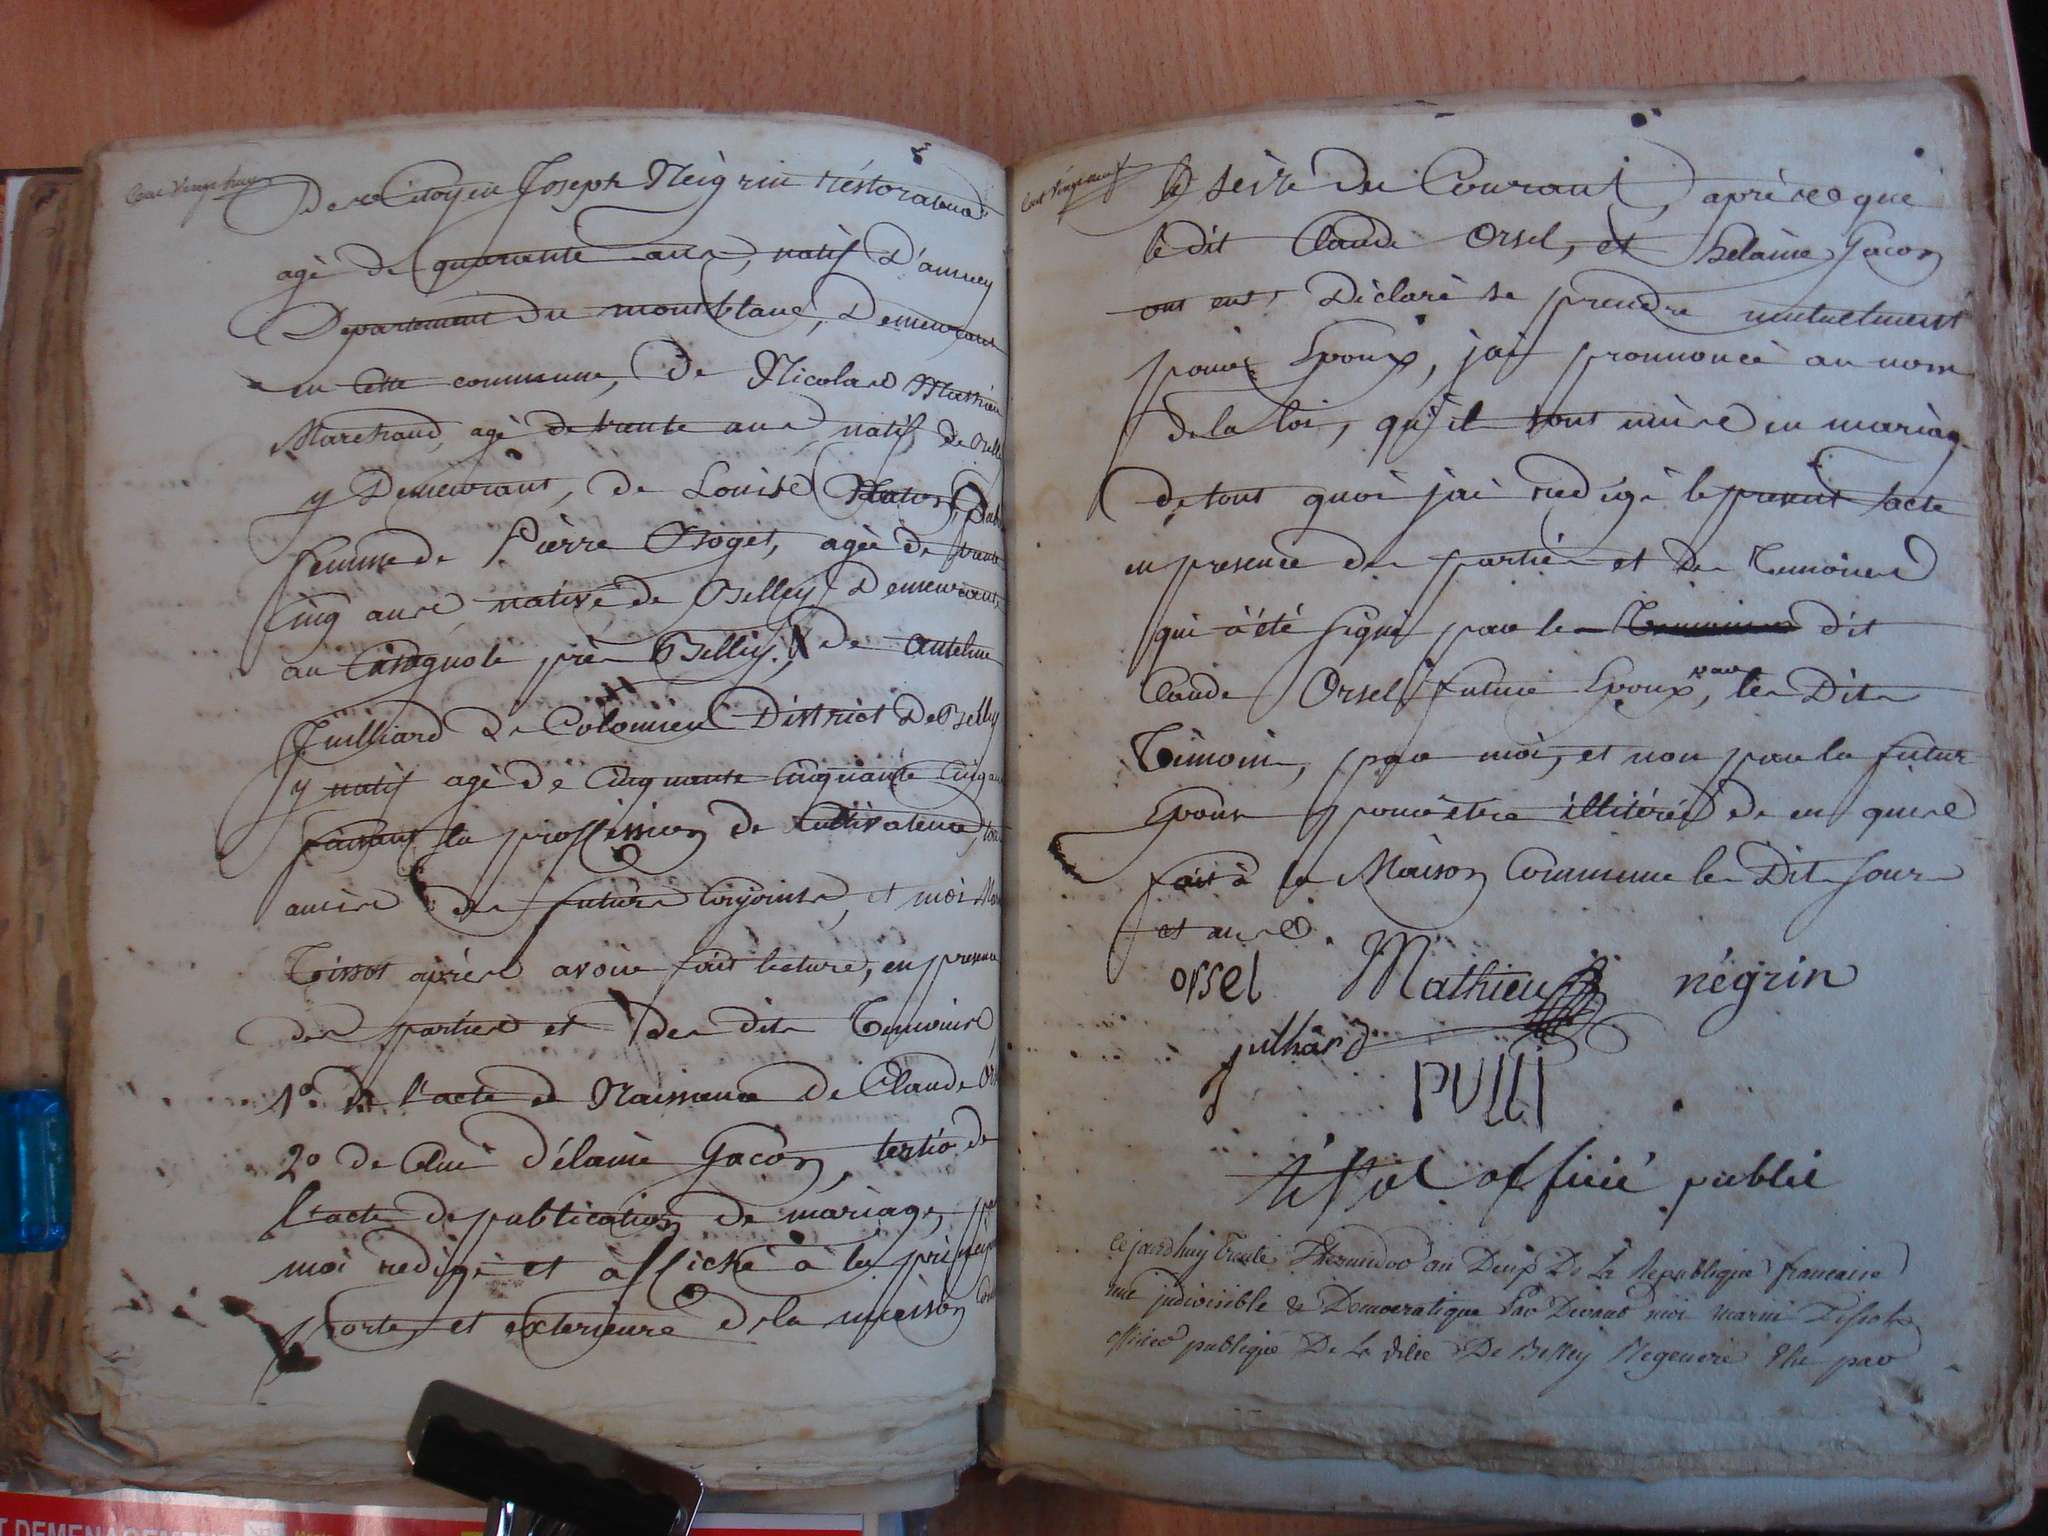 Cent Vingt huy
des Citoyen Joseph Nègrin réstorateur
agé de quarante ans, natif D'annecy
Departement du montblanc, Demeurant
en Cette commune, de Nicolas Mathieu
Marchand, agé de trente ans natif de Belley
y Demeurant, de Louise
femme de Pièrre Roget, agée de trente
Cinq ans native de Belley Demeurante
au près Belley, de Antelme
Juilliard de Colomieu District de Belley
y natif agé de Cinquante Cinquante Cinq ans
faisant la proffession de Cultivateur, tous
amis des futurs Conjoints, et moi
Tissot après avoir fait lecture, en presence
des parties et des dits Temoins
1° de l'acte de Naissance de Claude Orsel
2° de Celui d'élaine Gacon, tertio de
l'acte de publication de mariage, par
moi redigé et affiché à la principale
porte, et exterieure de la maison
Cent Vingt neuf
le seize du Courant, après que
le dit Claude Orsel, et helaine Gacon
ont eus, Déclaré se prendre mutuelment
pour Epoux, jai pronnoncé au nom
de la loi, qu'il sont unis en mariage
de tout quoi jai redigé le present acte
en presence des parties et des Temoins
qui à été signé par le Temoins dit
Claude Orsel futur Epoux, par les Dits
Témoin, par moi, et non par la futur
Epouse pour être illitéré de en quis
fait à la Maison Commune les Dits Jour
et ans.
orsel Mathieu négrin
julhard
PULLI
tissot officié public
Cejourdhuy trente Thermidor an Deux De La Republique francaise
une jndivisible & Democratique Par Devant moi marin Tissot
officier publique De La ville De Belley Regeneré Elu par